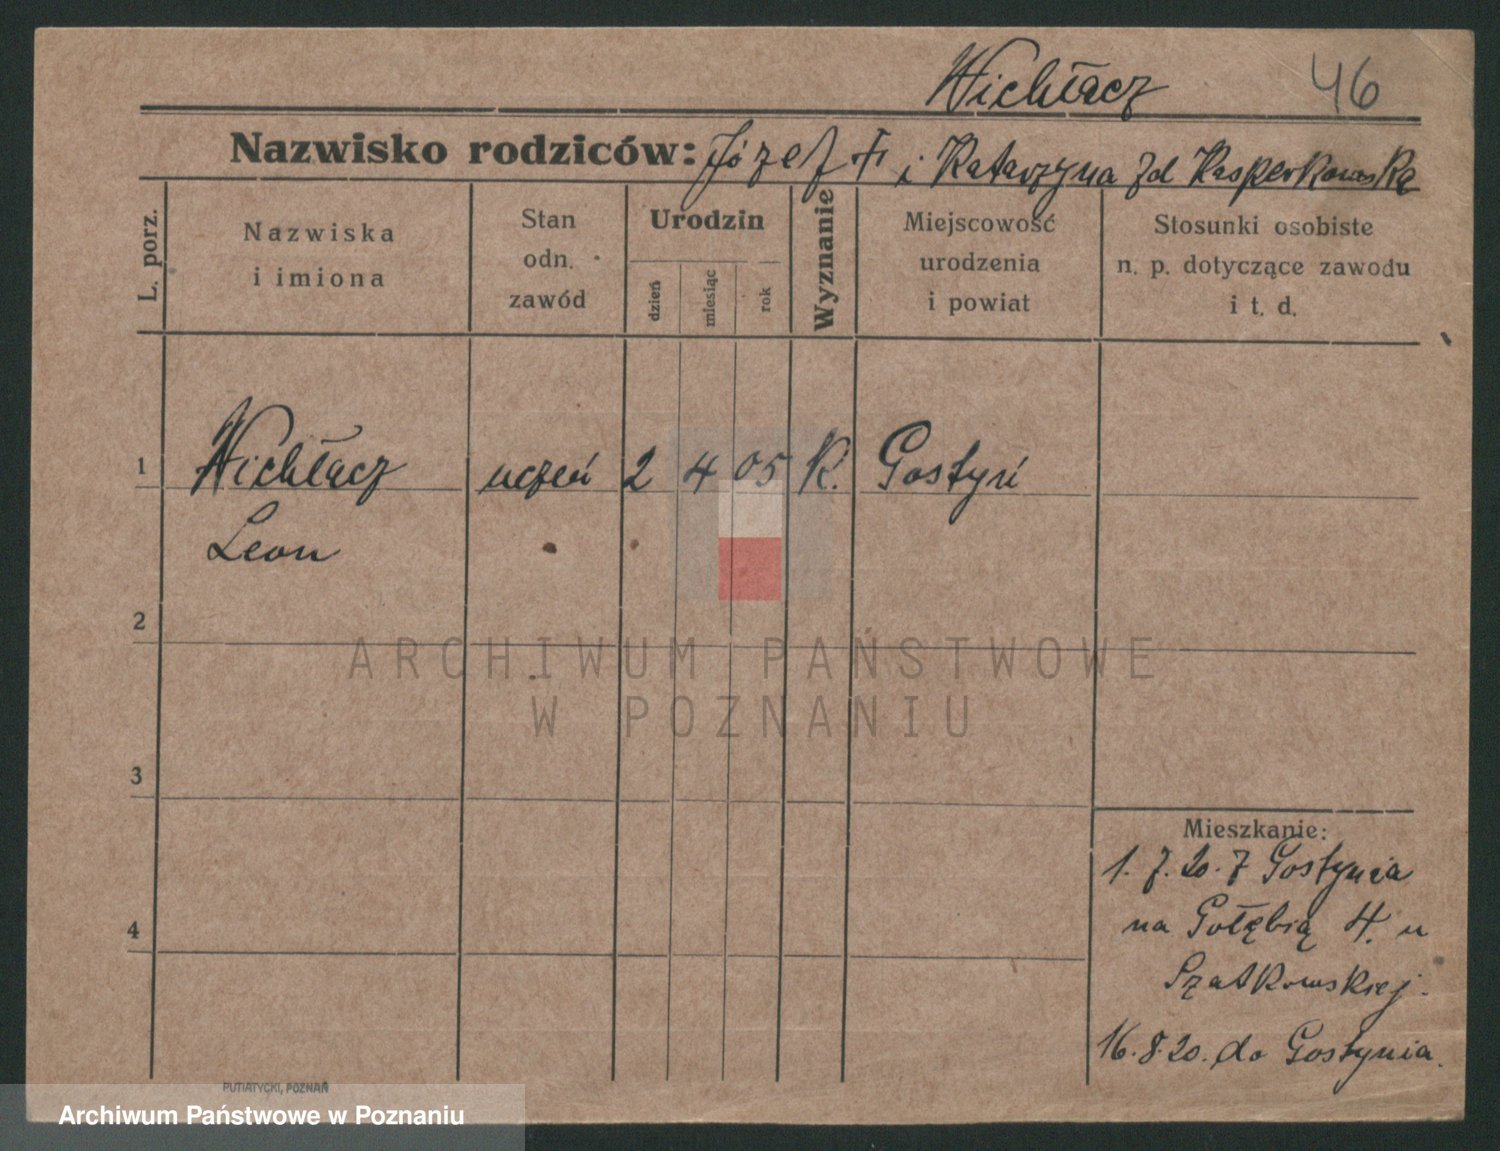 Wichłacz 46
Nazwisko rodziców: Józef + i Katarzyna zd Kasperkowska
L. porz.
Nazwiska
i imiona
Stan
odn.
zawód
Urodzin
dzień
miesiąc
rok
Wyznanie
Miejscowość
urodzenia
i powiat
Stosunki osobiste
n. p. dotyczące zawodu
i t. d.
1 Wichłacz uczeń 2 4 05 K. Gostyń
Leon
2
ARCHIWUM PAŃSTWOWE
W POZNANIU
3
Mieszkanie:
1. 7. 20. z Gostynia
4 na Gołębią 4. u
Szatkowskiej.
16. 8. 20. do Gostynia.
PUTIATYCKI, POZNAŃ
Archiwum Państwowe w Poznaniu